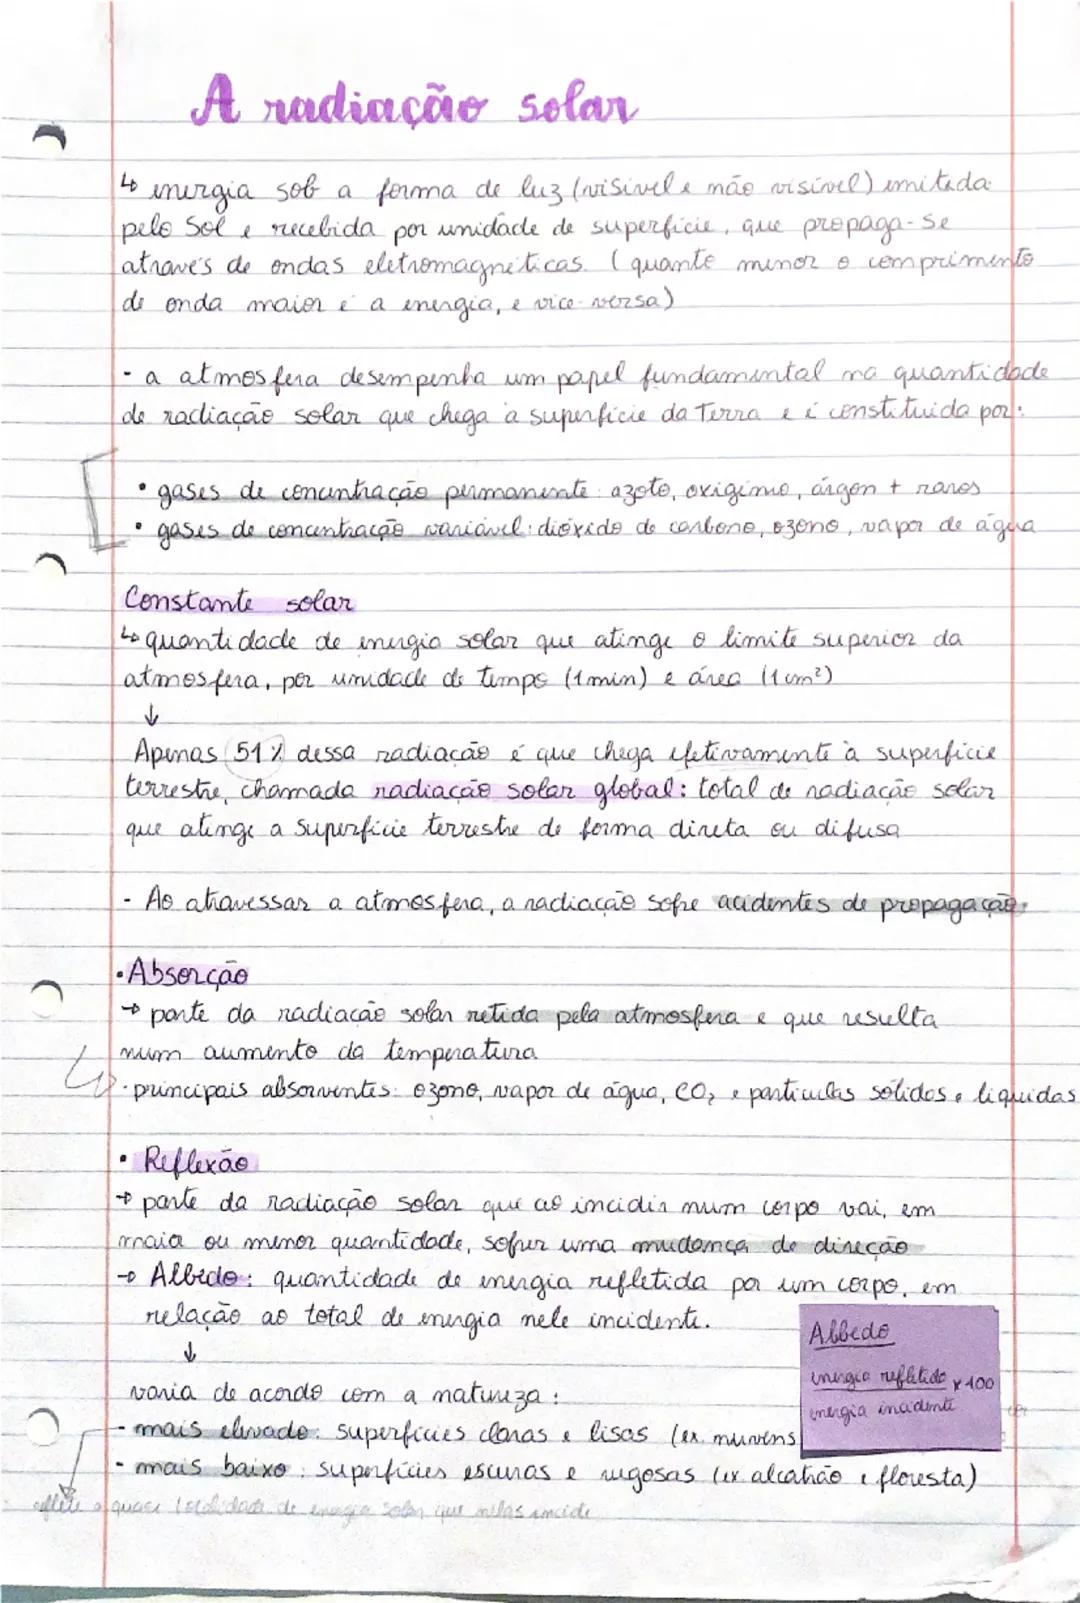 A radiação solar
↳ energia sob a forma de luz (visível e não visível) emitida
pelo Sol e recebida por unidade de superfície, que propaga-se
através de ondas eletromagnéticas. (quanto menor o comprimento
de onda maior é a energia, e vice-versa)
- a atmosfera desempenha um papel fundamental na quantidade
de radiação solar que chega à superfície da Terra e é constituída por:
• gases de concentração permanente: azoto, oxigénio, árgon + raros
• gases de concentração variável: dióxido de carbono, ozono, vapor de água
Constante solar
↳ quantidade de energia solar que atinge o limite superior da
atmosfera, por unidade de tempo (1 min) e área (1 cm²)
↓
Apenas 51% dessa radiação é que chega efetivamente à superfície
terrestre, chamada radiação solar global: total de radiação solar
que atinge a superfície terrestre de forma direta ou difusa
- Ao atravessar a atmosfera, a radiação sofre acidentes de propagação:
• Absorção
→ parte da radiação solar retida pela atmosfera e que resulta
num aumento da temperatura
• principais absorventes: ozono, vapor de água, CO₂ e partículas sólidas e líquidas
• Reflexão
→ parte da radiação solar que ao incidir num corpo vai, em
maia ou menor quantidade, sofrer uma mudança de direção
→ Albedo: quantidade de energia refletida por um corpo, em
relação ao total de energia nele incidente.
↓
Albedo
energia refletida x 100
energia incidente
varia de acordo com a natureza:
- mais elevado: superfícies claras e lisas (ex. nuvens
- mais baixo: superfícies escuras e rugosas (ex alcatrão e floresta)
reflete a quase totalidade de energia solar que nelas incide